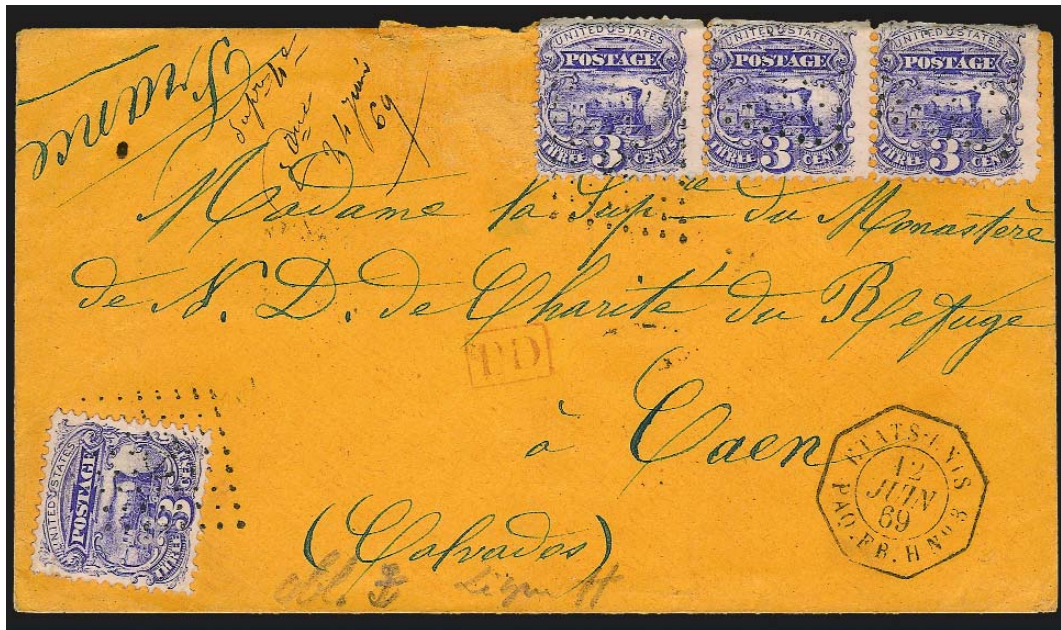 France
24 Juin
69
UNITED STATES
POSTAGE
THREE 3 CENTS
UNITED STATES
POSTAGE
THREE 3 CENTS
UNITED STATES
POSTAGE
THREE 3 CENTS
Madame la Supre du Monastère
de N. D. de Charité du Refuge
PD
à Caen
(Calvados)
ETATS-UNIS
12
JUIN
69
PAQ. FR. H No 3
UNITED STATES
POSTAGE
THREE 3 CENTS
Ligne H